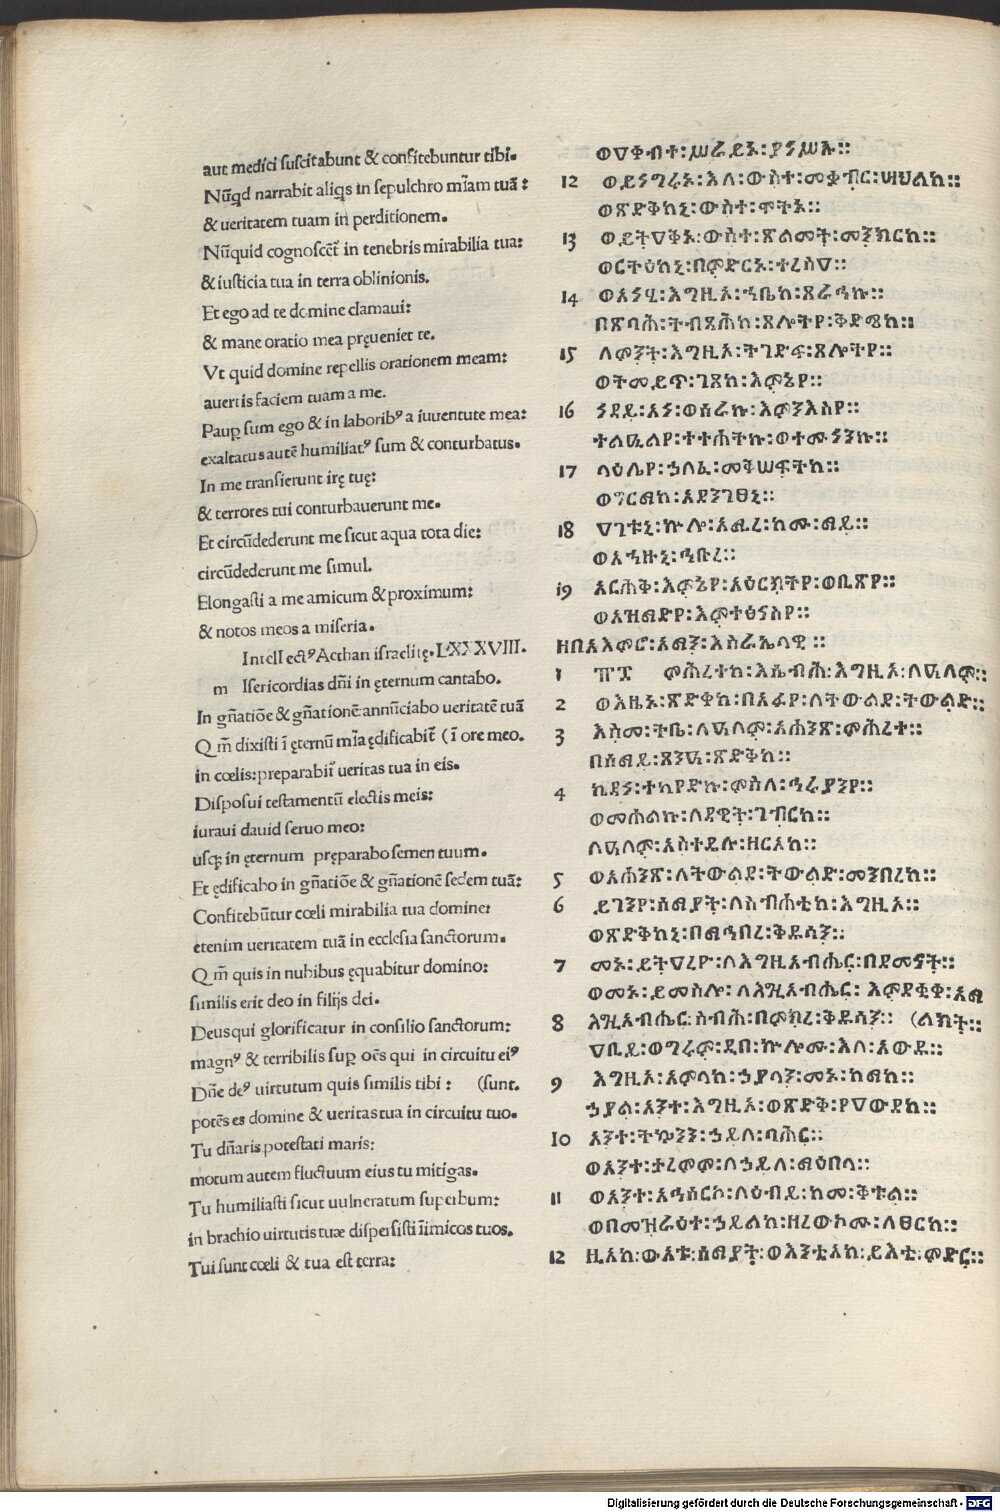 aut medici suscitabunt & confitebuntur tibi.
Nūqd narrabit aliqs in sepulchro m̄iam tuā:
& ueritatem tuam in perditionem.
Nūquid cognoscēt in tenebris mirabilia tua:
& iusticia tua in terra oblinionis.
Et ego ad te domine clamaui:
& mane oratio mea pręueniet te.
Vt quid domine repellis orationem meam:
auertis faciem tuam a me.
Paup sum ego & in laboribꝰ a iuuentute mea:
exaltatus autē humiliatꝰ sum & conturbatus.
In me transierunt irę tuę:
& terrores tui conturbauerunt me.
Et circūdederunt me sicut aqua tota die:
circūdederunt me simul.
Elongasti a me amicum & proximum:
& notos meos a miseria.
Intell ectꝰ Aethan israelitę. LXXXVIII.
m Isericordias dn̄i in ęternum cantabo.
In gn̄atiōe & gn̄ationē annūciabo ueritatē tuā
Qm̄ dixisti ī ęternū mīa ędificabit̄ (ī ore meo.
in cœlis: preparabit̄ ueritas tua in eis.
Disposui testamentū electis meis:
iuraui dauid seruo meo:
usq; in ęternum pręparabo semen tuum.
Et ędificabo in gn̄atiōe & gn̄ationē sedem tuā:
Confitebūtur cœli mirabilia tua domine:
etenim ueritatem tuā in ecclesia sanctorum.
Qm̄ quis in nubibus ęquabitur domino:
similis erit deo in filijs dei.
Deus qui glorificatur in consilio sanctorum:
magnꝰ & terribilis sup oēs qui in circuitu eiꝰ
Dn̄e deꝰ uirtutum quis similis tibi: (sunt.
potēs es domine & ueritas tua in circuitu tuo.
Tu dn̄aris potestati maris:
motum autem fluctuum eius tu mitigas.
Tu humiliasti sicut uulneratum superbum:
in brachio uirtutis tuæ dispersisti īimicos tuos.
Tui sunt cœli & tua est terra:
ወዐቀብተ፡ሥራይኑ፡ያነሥኡ፡፡
12 ወይነግሩኑ፡እለ፡ውስተ፡መቃብር፡ሣህለከ፡፡
ወጽድቅከኒ፡ውስተ፡ሞትኑ፡፡
13 ወይትዐቅኑ፡ውስተ፡ጽልመት፡መንክርከ፡፡
ወርትዕከኒ፡በምድርኑ፡ተረስዐ፡፡
14 ወአነሂ፡እግዚኦ፡ኀቤከ፡ጸራኅኩ፡፡
በጽባሕ፡ትብጻሕከ፡ጸሎትየ፡ቅድሜከ፡፡
15 ለምንት፡እግዚኦ፡ትገድፍ፡ጸሎትየ፡፡
ወትመይጥ፡ገጸከ፡እምኔየ፡፡
16 ነዳይ፡አነ፡ወሰራኩ፡እምንእስየ፡፡
ተልዒልየ፡ተተሕትኩ፡ወተመነንኩ፡፡
17 ላዕሌየ፡ኃለፈ፡መቅሠፍትከ፡፡
ወግርማከ፡አደንገፀኒ፡፡
18 ዐገቱኒ፡ኵሎ፡አሚረ፡ከመ፡ማይ፡፡
ወአኀዙኒ፡ኅቡረ፡፡
19 አርሐቀ፡እምኔየ፡አዕርክትየ፡ወቢጽየ፡፡
ወአዝማድየ፡እምተፅናስየ፡፡
ዘበአእምሮ፡አማን፡እስራኤላዊ፡፡
1 ፹፰ ምሕረተከ፡እሴብሕ፡እግዚኦ፡ለዓለም፡፡
2 ወእዜኑ፡ጽድቀከ፡በአፉየ፡ለትውልደ፡ትውልድ፡፡
3 እስመ፡ትቤ፡ለዓለም፡አሐንጽ፡ምሕረተ፡፡
በሰማይ፡ጸንዐ፡ጽድቅከ፡፡
4 ኪዳነ፡ተካየድኩ፡ምስለ፡ኅሩያንየ፡፡
ወመሐልኩ፡ለዳዊት፡ገብርከ፡፡
ለዓለም፡አስተዴሉ፡ዘርአከ፡፡
5 ወአሐንጽ፡ለትውልደ፡ትውልድ፡መንበረከ፡፡
6 ይገንዩ፡ሰማያት፡ለስብሐቲከ፡እግዚኦ፡፡
ወጽድቅከኒ፡በማኅበረ፡ቅዱሳን፡፡
7 መኑ፡ይትዔረዮ፡ለእግዚአብሔር፡በደመናት፡፡
ወመኑ፡ይመስሎ፡ለእግዚአብሔር፡እምደቂቀ፡አማ
8 እግዚአብሔር፡ስቡሕ፡በምክረ፡ቅዱሳን፡፡ (ልክት፡፡
ዐቢይ፡ወግሩም፡ዲበ፡ኵሎሙ፡እለ፡አውዱ፡፡
9 እግዚኦ፡አምላከ፡ኃያላን፡መኑ፡ከማከ፡፡
ኃያል፡አንተ፡እግዚኦ፡ወጽድቅ፡የዐውደከ፡፡
10 አንተ፡ትኴንን፡ኃይለ፡ባሕር፡፡
ወአንተ፡ታረምሞ፡ለኃይለ፡ማዕበላ፡፡
11 ወአንተ፡አኅሰርኮ፡ለዕቡይ፡ከመ፡ቅቱል፡፡
ወበመዝራዕተ፡ኃይልከ፡ዘረውኮሙ፡ለፀርከ፡፡
12 ዚአከ፡ውእቱ፡ሰማያት፡ወእንቲአከ፡ይእቲ፡ምድር፡፡
Digitalisierung gefördert durch die Deutsche Forschungsgemeinschaft - DFG